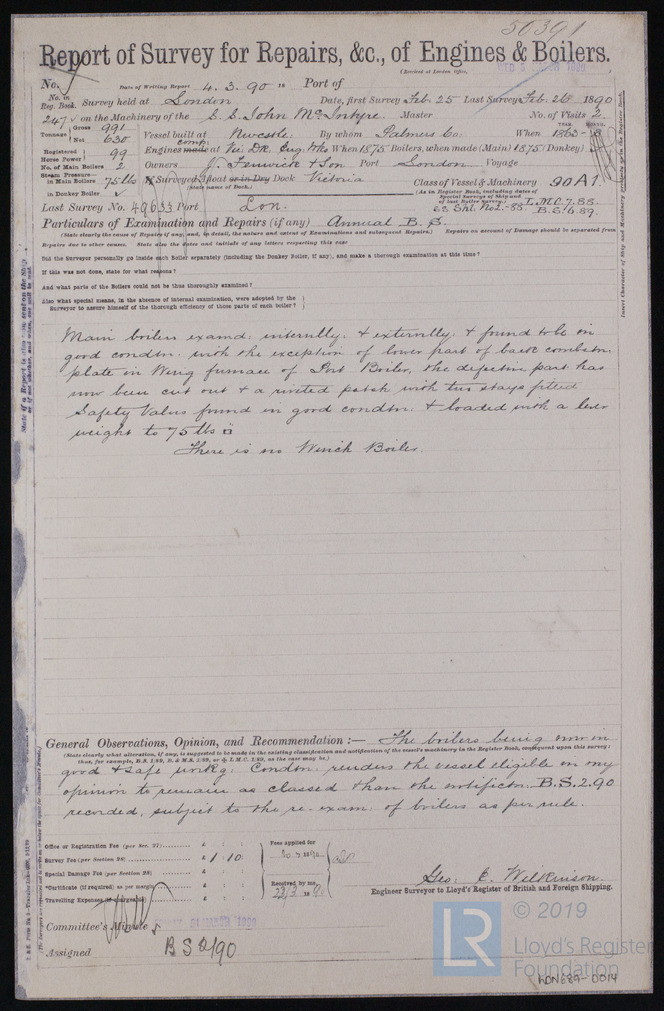 50391
Report of Survey for Repairs, &c., of Engines & Boilers.
(Received at London Office,
No. Date of Writing Report 4.3.90 18 Port of
No. in Reg. Book. Survey held at London Date, first Survey Feb 25 Last Survey Feb 26 1890
247 on the Machinery of the S.S. John McIntyre Master No. of Visits 2
Tonnage Gross 991 Net 630 Vessel built at Newcstle. By whom Palmers Co. When YEAR. 1863 MONTH. 8
Registered Horse Power 99 Engines made at Vic Dk. Eng. Wks When 1875 Boilers, when made (Main) 1875 (Donkey)
comp:
No. of Main Boilers 2 Owners J. Fenwick & Son Port London Voyage
Steam Pressure— in Main Boilers 75 lbs If Surveyed Afloat or in Dry Dock Victoria Class of Vessel & Machinery 90A1.
in Donkey Boiler (State name of Dock.) (As in Register Book, including dates of Special Surveys of Ship and of last Boiler Survey.) L.M.C. 7.88.
Last Survey No. 49633 Port Lon. B.S. 6.89.
Particulars of Examination and Repairs (if any) Annual B.S.
(State clearly the cause of Repairs if any, and, in detail, the nature and extent of Examinations and subsequent Repairs.) Repairs on account of Damage should be separated from
Repairs due to other causes. State also the dates and initials of any letters respecting this case
Did the Surveyor personally go inside each Boiler separately (including the Donkey Boiler, if any), and make a thorough examination at this time?
If this was not done, state for what reasons?
And what parts of the Boilers could not be thus thoroughly examined?
Also what special means, in the absence of internal examination, were adopted by the
Surveyor to assure himself of the thorough efficiency of those parts of each boiler?
Main boilers examd. internlly. & externlly. & found to be in
good condtn. with the exception of lower part of back combstn.
plate in Wing furnace of Port Boiler, the defective part has
now been cut out & a riveted patch with two stays fitted
Safety Valves found in good condtn. & loaded with a lever
weight to 75 lbs □
There is no Winch Boiler.
General Observations, Opinion, and Recommendation :— The boilers being now in
(State clearly what alteration, if any, is suggested to be made in the existing classification and notification of the vessel's machinery in the Register Book, consequent upon this survey;
thus, for example, B.S. 1/89, B. & M.S. 1/89, or L.M.C. 1/89, as the case may be.)
good & safe workg. Condtn. renders the vessel eligible in my
opinion to remain as classed & have the notificatn. B.S. 2.90
recorded, subject to the re-exam. of boilers as per rule.
Office or Registration Fee (per Sec. 27) £ : :
Survey Fee (per Section 28) £ 1 : 10 :
Special Damage Fee (per Section 28) £ : :
*Certificate (if required) as per margin £ : :
Travelling Expenses (if chargeable) £ : :
Fees applied for
Received by me,
Geo: C. Wilkinson.
Engineer Surveyor to Lloyd's Register of British and Foreign Shipping.
Committee's Minute
Assigned B S 2/90
© 2019
LR
Lloyd's Register
Foundation
LDN689-0014